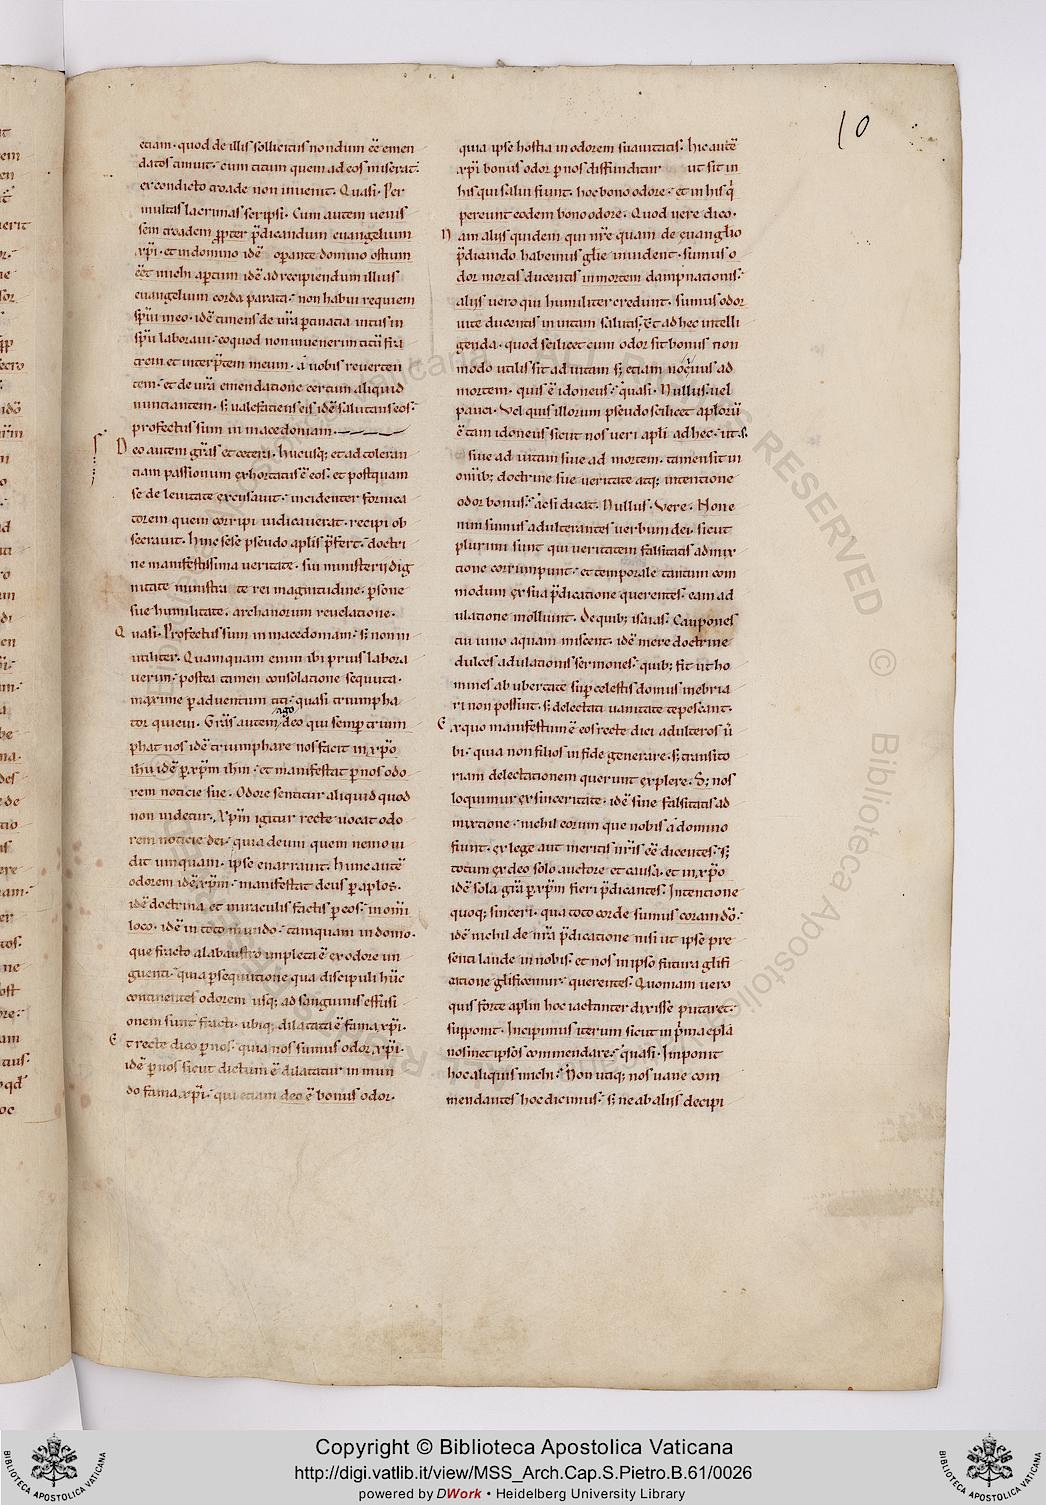 10
etiam· quod de illis sollicitus nondum eē emen
datos timuit· cum titum quem ad eos miserat·
ex condicto troade non invenit· Quasi· Per
multas lacrimas scripsi· Cum autem venis
sem troadem ꝓpter p̄dicandum euangelium
xp̄i· et in domino idē operante domino ostium
eēt michi aptum idē ad recipiendum illius
euangelium corda parata· non habui requiem
sp̄ui meo· idē timens de ur̄a ptinatia intus in
sp̄u laboraui· eo quod non inuenerim titū fra
trem et interp̄tem meum· a uobis reuerten
tem· et de ur̄a emendatione certum aliquid
nunciantem· sʒ ualefaciens eis idē salutans eos·
profectus sum in macedoniam·
Deo autem grās et cetera· hucusqʒ et ad toleran
tiam passionum exhortatus ē eos· et postquam
se de leuitate excusauit· incidenter fornica
torem quem corripi iudicauerat· recipi ob
secrauit· hinc sese pseudo aplis p̄fert· doctri
ne manifestissima ueritate· sui ministerij dig
nitate ministra te rei magnitudine· psone
sue humilitate· archanorum reuelatione·
Quasi· Profectus sum in macedoniam· sʒ non in
utiliter· Quamquam enim ibi prius labora
uerim· postea tamen consolatione sequuta·
maxime p aduentum titi· quasi triumpha
tor quieui· Grās autem ago deo qui semp trium
phat nos idē triumphare nos facit in xp̄o
ih̄u idē p xp̄m ih̄m· et manifestat p nos odo
rem noticie sue· Odore sentitur aliquid quod
non uidetur· Xp̄m igitur recte uocat odo
rem noticie dei· quia deum quem nemo ui
dit umquam· ipse enarrauit· hunc autē
odorem idē xp̄m· manifestat deus p aplos·
idē doctrina et miraculis factis p eos· in omī
loco· idē in toto mundo· tamquam in domo·
que fracto alabaustro impleta ē ex odore un
guenti· quia psequutione qua discipuli hūc
continentes odorem usqʒ ad sanguinis effusi
onem sunt fracti· ubiqʒ dilatata ē fama xp̄i·
Et recte dico p nos· quia nos sumus odor xp̄i·
idē p nos sicut dictum ē dilatatur in mun
do fama xp̄i· qui etiam deo ē bonus odor·
quia ipse hostia in odorem suauitatis· hic autē
xp̄i bonus odor p nos diffunditur ut sit in
his qui salui fiunt· hoc bono odore· et in his q̄
pereunt eodem bono odore· Quod uere dico·
Nam alijs quidem qui nr̄e quam de euanglio
p̄dicando habemus glīe inuident· sumus o
dor mortis ducentis in mortem dampnationis·
alijs uero qui humiliter credunt· sumus odor
uite ducentis in uitam salutis· Et ad hec intelli
genda· quod scilicet cum odor sit bonus non
modo utilis sit ad uitam sʒ etiam nociuus ad
mortem· quis ē idoneus· quasi· Nullus· uel
pauci· Vel quis illorum pseudo scilicet aplorū
ē tam idoneus sicut nos ueri apli ad hec· ut s·
siue ad uitam siue ad mortem· tamen sit in
omībʒ doctrine sue ueritate atqʒ intentione
odor bonus· ac si dicat· Nullus· Vere· Non e
nim sumus adulterantes uerbum dei· sicut
plurimi sunt qui ueritatem falsitatis admix
tione corrumpunt· et temporale tantum com
modum ex sua p̄dicatione querentes· eam ad
ulatione molliunt· De quibʒ isaias· Caupones
tui uino aquam miscent· idē mere doctrine
dulces adulationis sermones· quibʒ fit ut ho
mines ab ubertate sup celestis domus inebria
ri non possint· sʒ delectati uanitate tepescant·
Ex quo manifestum ē eos recte dici adulteros ū
bi· quia non filios in fide generare· sʒ transito
riam delectationem querunt explere· Sʒ nos
loquimur ex sinceritate· idē sine falsitatis ad
mixtione· nichil eorum que nobis a domino
fiunt· ex lege aut meritis nr̄is eē dicentes· sʒ
totum ex deo solo auctore et causa· et in xp̄o
idē sola grā p xp̄m fieri p̄dicantes· Intentione
quoqʒ sinceri· qua toto corde sumus coram dō·
idē nichil de nr̄a p̄dicatione nisi ut ipse pre
senti laude in nobis· et nos in ipso futura glifi
catione glificemur· querentes· Quoniam uero
quis forte aplm hoc iactanter dixisse putaret·
supponit· Incipimus iterum sicut in p̄ma epla
nosmet ipsos commendare· quasi· Imponit
hoc aliquis michi· Non utiqʒ nos uane com
mendantes hoc dicimus· sʒ ne ab alijs decipi
Copyright © Biblioteca Apostolica Vaticana
http://digi.vatlib.it/view/MSS_Arch.Cap.S.Pietro.B.61/0026
powered by DWork • Heidelberg University Library